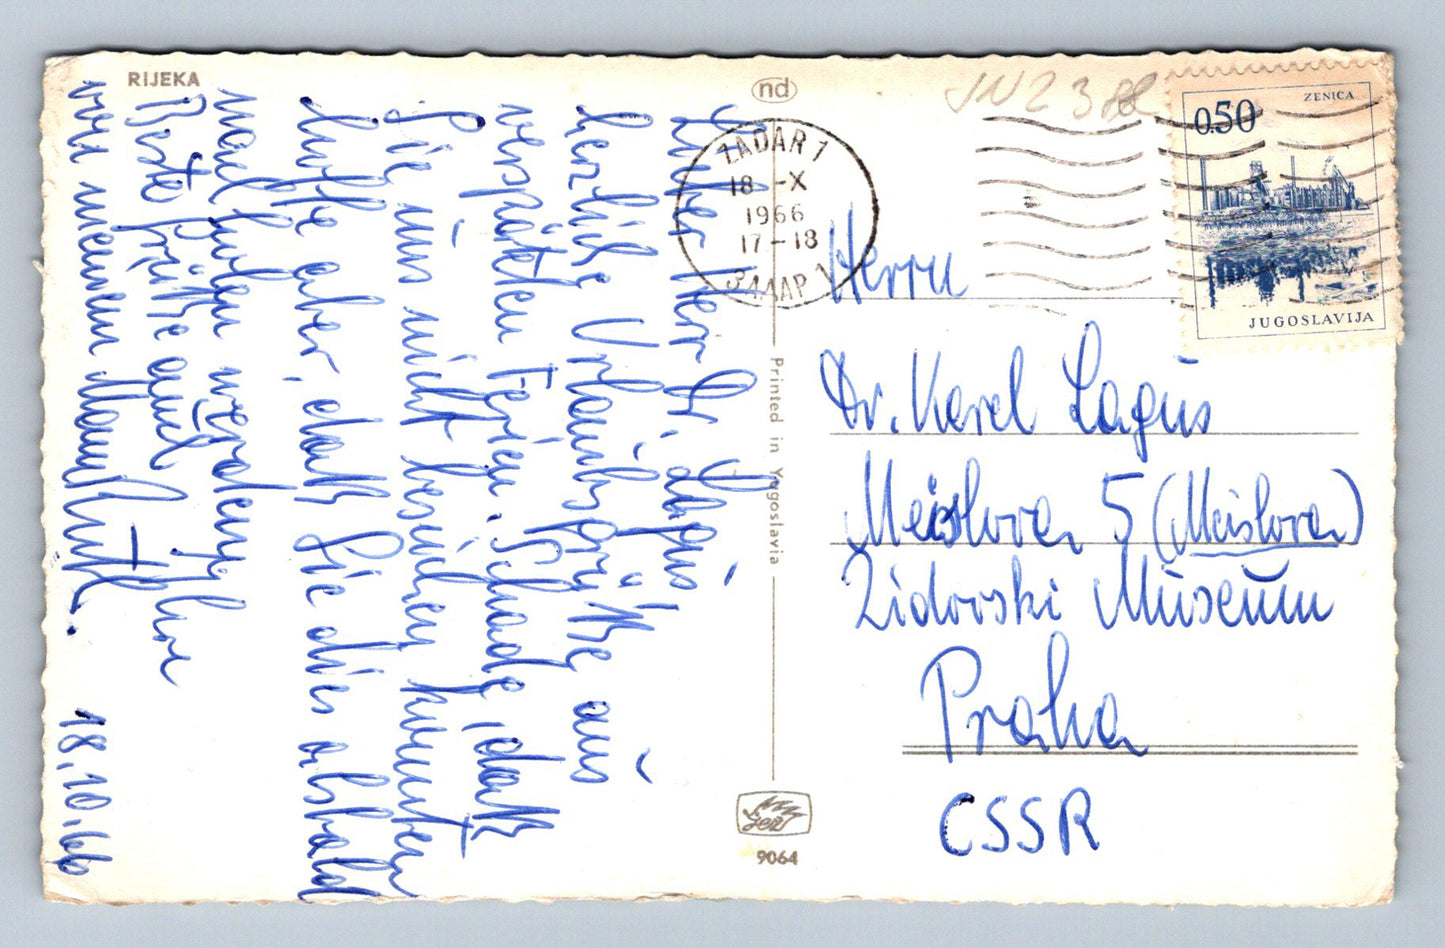 RIJEKA
nd
JNZ 3
0.50
ZENICA
JUGOSLAVIJA
ZADAR 1
18 -X
1966
17-18
ЗАДАР 1
Lieber Herr Dr. Lagus,
herzliche Urlaubsgrüße aus
verspäteten Ferien. Schade, daß
Sie uns nicht besuchen konnten
hoffe aber, daß Sie dies alsbald
nachholen werden
Beste Grüße auch
von meinem Mann
18.10.66
Printed in Yugoslavia
9064
Herrn
Dr. Karel Lagus
Meislova 5 (Maislova)
Židovski Museum
Praha
CSSR